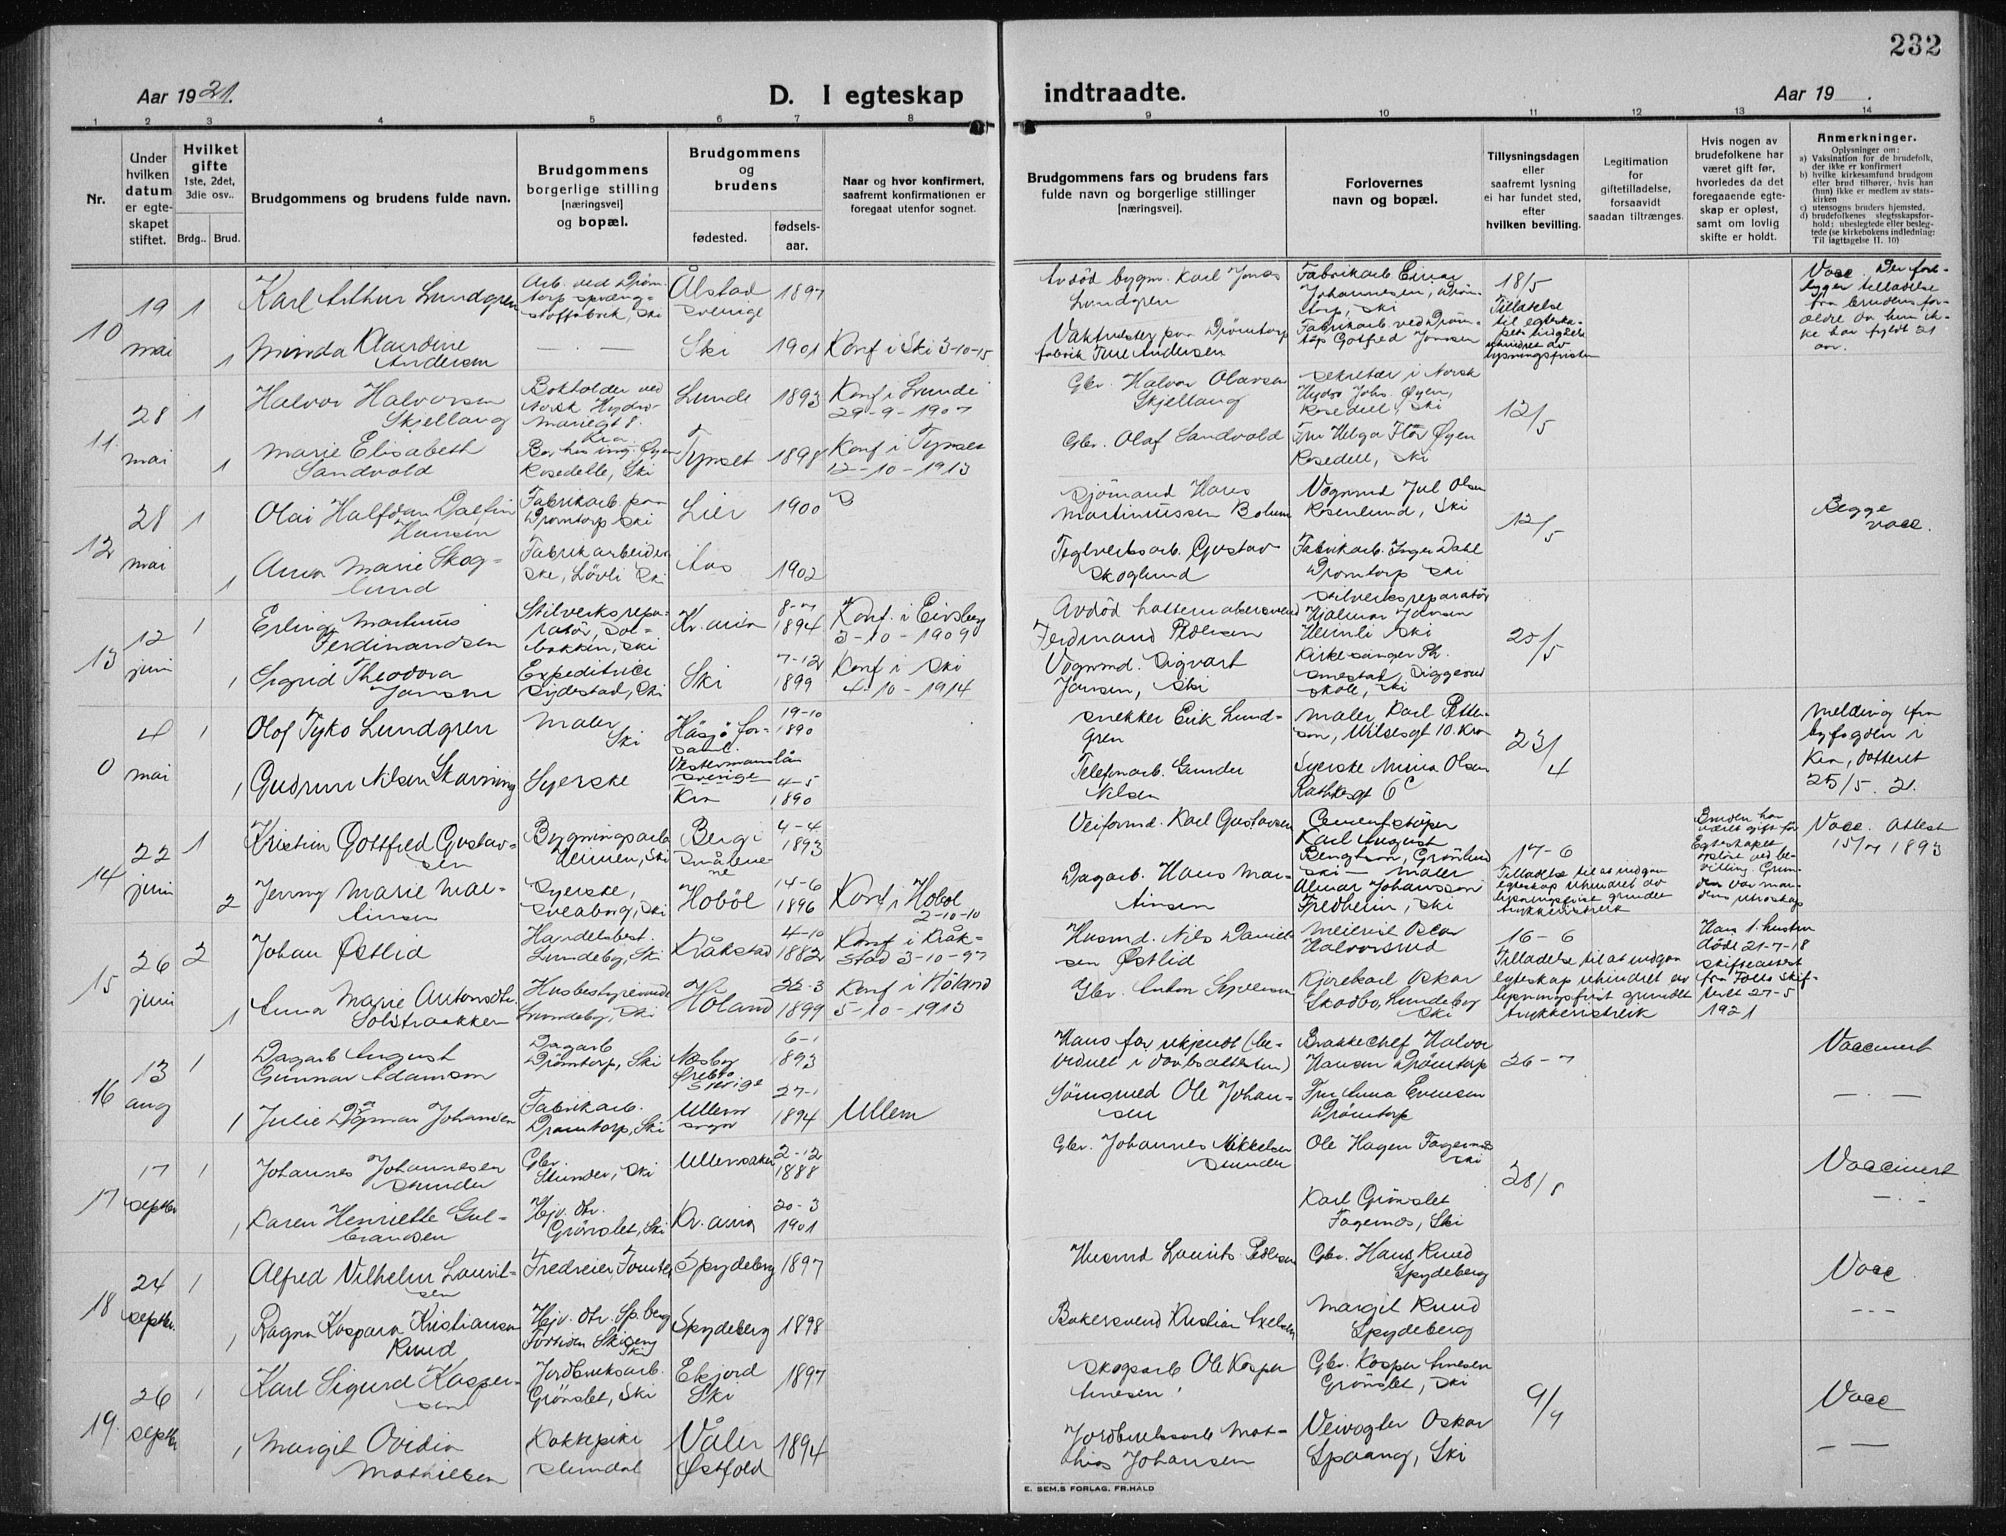 232
Aar 1921.
D. I egteskap indtraadte.
Aar 19 .
1 2 3 4 5 6 7 8 9 10 11 12 13 14
Nr.
Under hvilken datum er egteskapet stiftet.
Hvilket gifte 1ste, 2det, 3die osv..
Brdg.. Brud.
Brudgommens og brudens fulde navn.
Brudgommens borgerlige stilling [næringsvei] og bopæl.
Brudgommens og brudens
fødested. fødsels-aar.
Naar og hvor konfirmert, saafremt konfirmationen er foregaat utenfor sognet.
Brudgommens fars og brudens fars fulde navn og borgerlige stillinger [næringsvei].
Forlovernes navn og bopæl.
Tillysningsdagen eller saafremt lysning ei har fundet sted, efter hvilken bevilling.
Legitimation for giftetilladelse, forsaavidt saadan tiltrænges.
Hvis nogen av brudefolkene har været gift før, hvorledes da det foregaaende egteskap er opløst, samt om lovlig skifte er holdt.
Anmerkninger.
Oplysninger om:
a) Vaksination for de brudefolk, der ikke er konfirmert
b) hvilke kirkesamfund brudgom eller brud tilhører, hvis han (hun) ikke er medlem av statskirken
c) utensogns bruders hjemsted.
d) brudefolkenes slegtsskapsforhold; ubeslegtede eller beslegtede (se kirkebokens indledning: Til iagttagelse II. 10)
10
19 mai
1
Karl Arthur Lundgren
Arb. ved Drömtorp sprængstoffabrik, Ski
Ålstad Sverige
1897
Avdöd bygm. Karl Jonas Lundgren
Fabrikarb Einar Johannesen, Drömtorp, Ski
18/5
Tillatelse til egteskapets inngåelse uhindret av lysningsfristen
Vacc. Der foreligger tilladelse fra brudens forældre da hun ikke har fyldt 21 aar.
1
Minda Klaudine Andersen
— . —
Ski
1901
Konf i Ski 3-10-15
Vaktmester paa Drömtorp fabrik Ture Andersen
Fabrikarb ved Drömtorp Gotfred Jonsson
11
28 mai
1
Halvor Halvorsen Skjellaug
Bokholder ved Norsk Hydro Mariegt 8. Kra
Lunde
1893
Konf i Lunde 29-9-1907
Gbr. Halvor Olavsen Skjellaug
Sekretær i Norsk Hydro Johs. Øyen, Rosedell, Ski
12/5
1
Marie Elisabeth Sandvold
Bor hos ing. Øyen Rosedell, Ski
Tynset
1898
Konf i Tynset 12-10-1913
Gbr. Olaf Sandvold
Fru Helga Flor Øyen Rosedell, Ski
12
28 mai
1
Olai Halfdan Dalfin Hansen
Fabrikarb paa Dromtorp Ski
Lier
1900
Sjömand Hans Martiniussen Bolum
Vognmd Jul Olsen Rosenlund, Ski
12/5
Begge vacc.
1
Anna Marie Skoglund
Fabrikarbeiderske, Lövli Ski
Aas
1902
Teglverksarb. Gustav Skoglund
Fabrikarb. Inger Dahl Dromtorp Ski
13
12 juni
1
Erling Martinius Ferdinandsen
Stilverksreparatör, Solbakken, Ski
Kr.ania
8-7 1894
Konf. i Eivsberg 3-10-1909
Avdöd hattemakersvend Ferdinand Pedersen
Stilverksreparatör Hjalmar Jansen Heimli Ski
25/5
1
Sigrid Theodora Jansen
Expeditrice Sydestad, Ski
Ski
7-12 1899
Konf i Ski 4-10-1914
Vognmd. Sigvart Jansen, Ski
Kirkesanger Ph. Smestad, Siggerud skole, Ski
0
4 mai
1
Olof Tyko Lundgren
Maler Ski
Håsjö forsaml. Vestermanslän Sverige
19-10 1890
Snekker Erik Lundgren
Maler Karl Pettersen, Wilsesgt 10. Kra
23/4
Melding fra byfogden i Kra, datteret 25/5. 21.
1
Gudrun Nilsen Skarning
Syerske
Kra
4-5 1890
Telefonarb. Gunder Nilsen
Syerske Minna Olsen Rathkesgt 6c
14
22 juni
1
Kristian Gottfred Gustavsen
Bygningsarb Hermen, Ski
Berg i Smålenene
4-4 1893
Veiformd. Karl Gustavsen
Cementstöper Karl August Bengtson, Grönlund Ski
17-6
Tilladelse til at indgaa egteskap uhindret av lysningsfrist grundet trykkeristreik
Bruden har været gift för Egteskapet oplöst ved bevilling Grunden var mandens utroskap
Vacc. attest 15/7 1893
2
Jenny Marie Martinsen
Syerske, Sveaborg, Ski
Hobøl
14-6 1896
Konf i Hobøl 2-10-10
Dagarb. Hans Martinsen
Maler Almar Johansson Fredheim, Ski
15
26 juni
2
Johan Østlid
Handelsbest. Lundeby, Ski
Kråkstad
4-10 1882
Konf i Kråkstad 3-10-97
Husmd. Nils Danielsen Østlid
Meierist Oscar Halvorsrud
16-6
Tilladelse til at indgaa egteskap uhindret av lysningsfrist grundet trykkeristreik
Hans 1. hustru döde 21-7-18 skifteattest fra Follo skifterett 27-5 1921
1
Anna Marie Antonsdtr. Solstraakken
Husbestyrerinde Lundeby, Ski
Höland
22-3 1899
Konf i Höland 5-10-1913
Gbr. Anton Syversen
Kjörekarl Oskar Skodbo, Lundeby Ski
16
13 aug
1
Dagarb August Gunnar Adamson
Dagarb Drömtorp, Ski
Næsby Örebro Sverige
6-1 1893
Hans far ukjendt (bevidnet i daabsattesten)
Brakkechef Halvor Hansen Drömtorp
26-7
Vaccinert
1
Julie Dagmar Johansen
Fabrikarb. Dromtorp, Ski
Ullern sogn
27-1 1894
Ullern
Sömsmed Ole Johansen
Fru Anna Evensen Drömtorp
— . —
17
17 septbr
1
Johannes Johannesen Stunder
Gbr. Stunder, Ski
Ullensaker
2-12 1888
Gbr. Johannes Mikkelsen Stunder
Ole Hagen Fagernes Ski
28/8
Vaccinert
1
Karen Henriette Gulbrandsen
Hjv. dtr. Grönslet, Ski
Kr.ania
20-3 1901
Karl Grönslet Fagernes, Ski
— . —
18
24 septbr.
1
Alfred Vilhelm Lauritsen
Spydeberg
1897
Husmd Laurits Pedersen
Gbr. Hans Ruud Spydeberg
Vacc
1
Ragna Kaspara Kristiansen Ruud
Hjv. dtr. Sp.berg
Spydeberg
1898
Bakersvend Kristian Axelsen
Margit Ruud Spydeberg
- - -
19.
26 septbr
1
Karl Sigurd Kaspersen
Jordbruksarb. Grönslet, Ski
Ekjord Ski
1897
Skogsarb Ole Kasper Arnesen
Gbr. Kasper Arnesen Grönslet, Ski
9/9
Vacc
1
Margit Ovidia Mathilsen
Kokkepike
Våler Østfold
1894
Jordbruksarb Mathias Johansen
Veivogter Oskar Spaang, Ski
— —
E. SEM.S FORLAG, FR.HALD